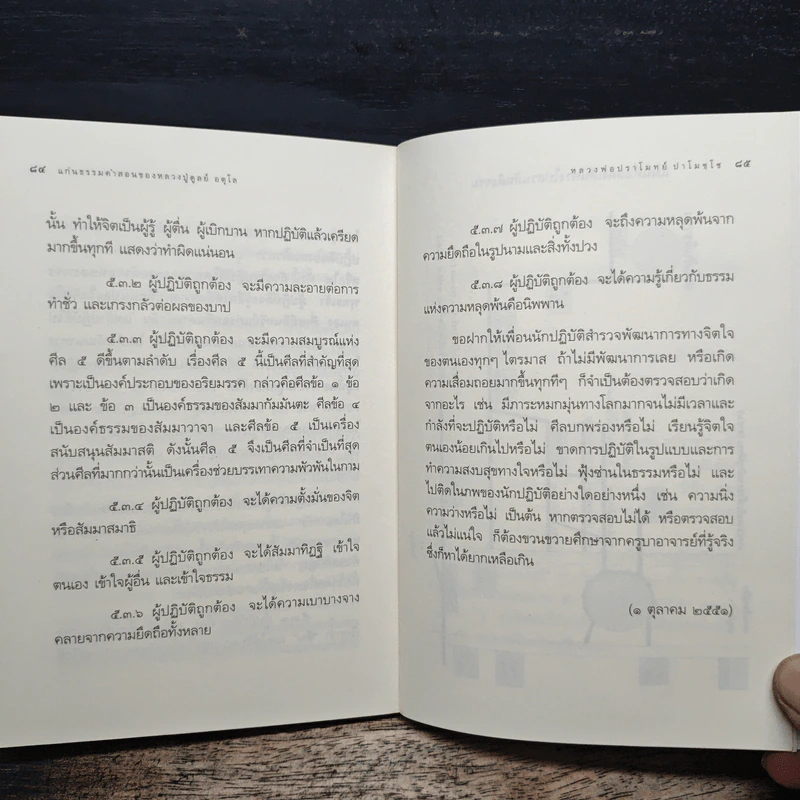 ๘๔ แก่นธรรมคำสอนของหลวงปู่ดูลย์ อตุโล
นั้น ทำให้จิตเป็นผู้รู้ ผู้ตื่น ผู้เบิกบาน หากปฏิบัติแล้วเครียด
มากขึ้นทุกที แสดงว่าทำผิดแน่นอน
๕.๓.๒ ผู้ปฏิบัติถูกต้อง จะมีความละอายต่อการ
ทำชั่ว และเกรงกลัวต่อผลของบาป
๕.๓.๓ ผู้ปฏิบัติถูกต้อง จะมีความสมบูรณ์แห่ง
ศีล ๕ ดีขึ้นตามลำดับ เรื่องศีล ๕ นี้เป็นศีลที่สำคัญที่สุด
เพราะเป็นองค์ประกอบของอริยมรรค กล่าวคือศีลข้อ ๑ ข้อ
๒ และ ข้อ ๓ เป็นองค์ธรรมของสัมมากัมมันตะ ศีลข้อ ๔
เป็นองค์ธรรมของสัมมาวาจา และศีลข้อ ๕ เป็นเครื่อง
สนับสนุนสัมมาสติ ดังนั้นศีล ๕ จึงเป็นศีลที่จำเป็นที่สุด
ส่วนศีลที่มากกว่านั้นเป็นเครื่องช่วยบรรเทาความพัวพันในกาม
๕.๓.๔ ผู้ปฏิบัติถูกต้อง จะได้ความตั้งมั่นของจิต
หรือสัมมาสมาธิ
๕.๓.๕ ผู้ปฏิบัติถูกต้อง จะได้สัมมาทิฏฐิ เข้าใจ
ตนเอง เข้าใจผู้อื่น และเข้าใจธรรม
๕.๓.๖ ผู้ปฏิบัติถูกต้อง จะได้ความเบาบางจาง
คลายจากความยึดถือทั้งหลาย
หลวงพ่อปราโมทย์ ปาโมชฺโช ๘๕
๕.๓.๗ ผู้ปฏิบัติถูกต้อง จะถึงความหลุดพ้นจาก
ความยึดถือในรูปนามและสิ่งทั้งปวง
๕.๓.๘ ผู้ปฏิบัติถูกต้อง จะได้ความรู้เกี่ยวกับธรรม
แห่งความหลุดพ้นคือนิพพาน
ขอฝากให้เพื่อนนักปฏิบัติสำรวจพัฒนาการทางจิตใจ
ของตนเองทุกๆ ไตรมาส ถ้าไม่มีพัฒนาการเลย หรือเกิด
ความเสื่อมถอยมากขึ้นทุกทีๆ ก็จำเป็นต้องตรวจสอบว่าเกิด
จากอะไร เช่น มีภาระหมกมุ่นทางโลกมากจนไม่มีเวลาและ
กำลังที่จะปฏิบัติหรือไม่ ศีลบกพร่องหรือไม่ เรียนรู้จิตใจ
ตนเองน้อยเกินไปหรือไม่ ขาดการปฏิบัติในรูปแบบและการ
ทำความสงบสุขทางใจหรือไม่ ฟุ้งซ่านในธรรมหรือไม่ และ
ไปติดในภพของนักปฏิบัติอย่างใดอย่างหนึ่ง เช่น ความนิ่ง
ความว่างหรือไม่ เป็นต้น หากตรวจสอบไม่ได้ หรือตรวจสอบ
แล้วไม่แน่ใจ ก็ต้องขวนขวายศึกษาจากครูบาอาจารย์ที่รู้จริง
ซึ่งก็หาได้ยากเหลือเกิน
(๑ ตุลาคม ๒๕๕๑)